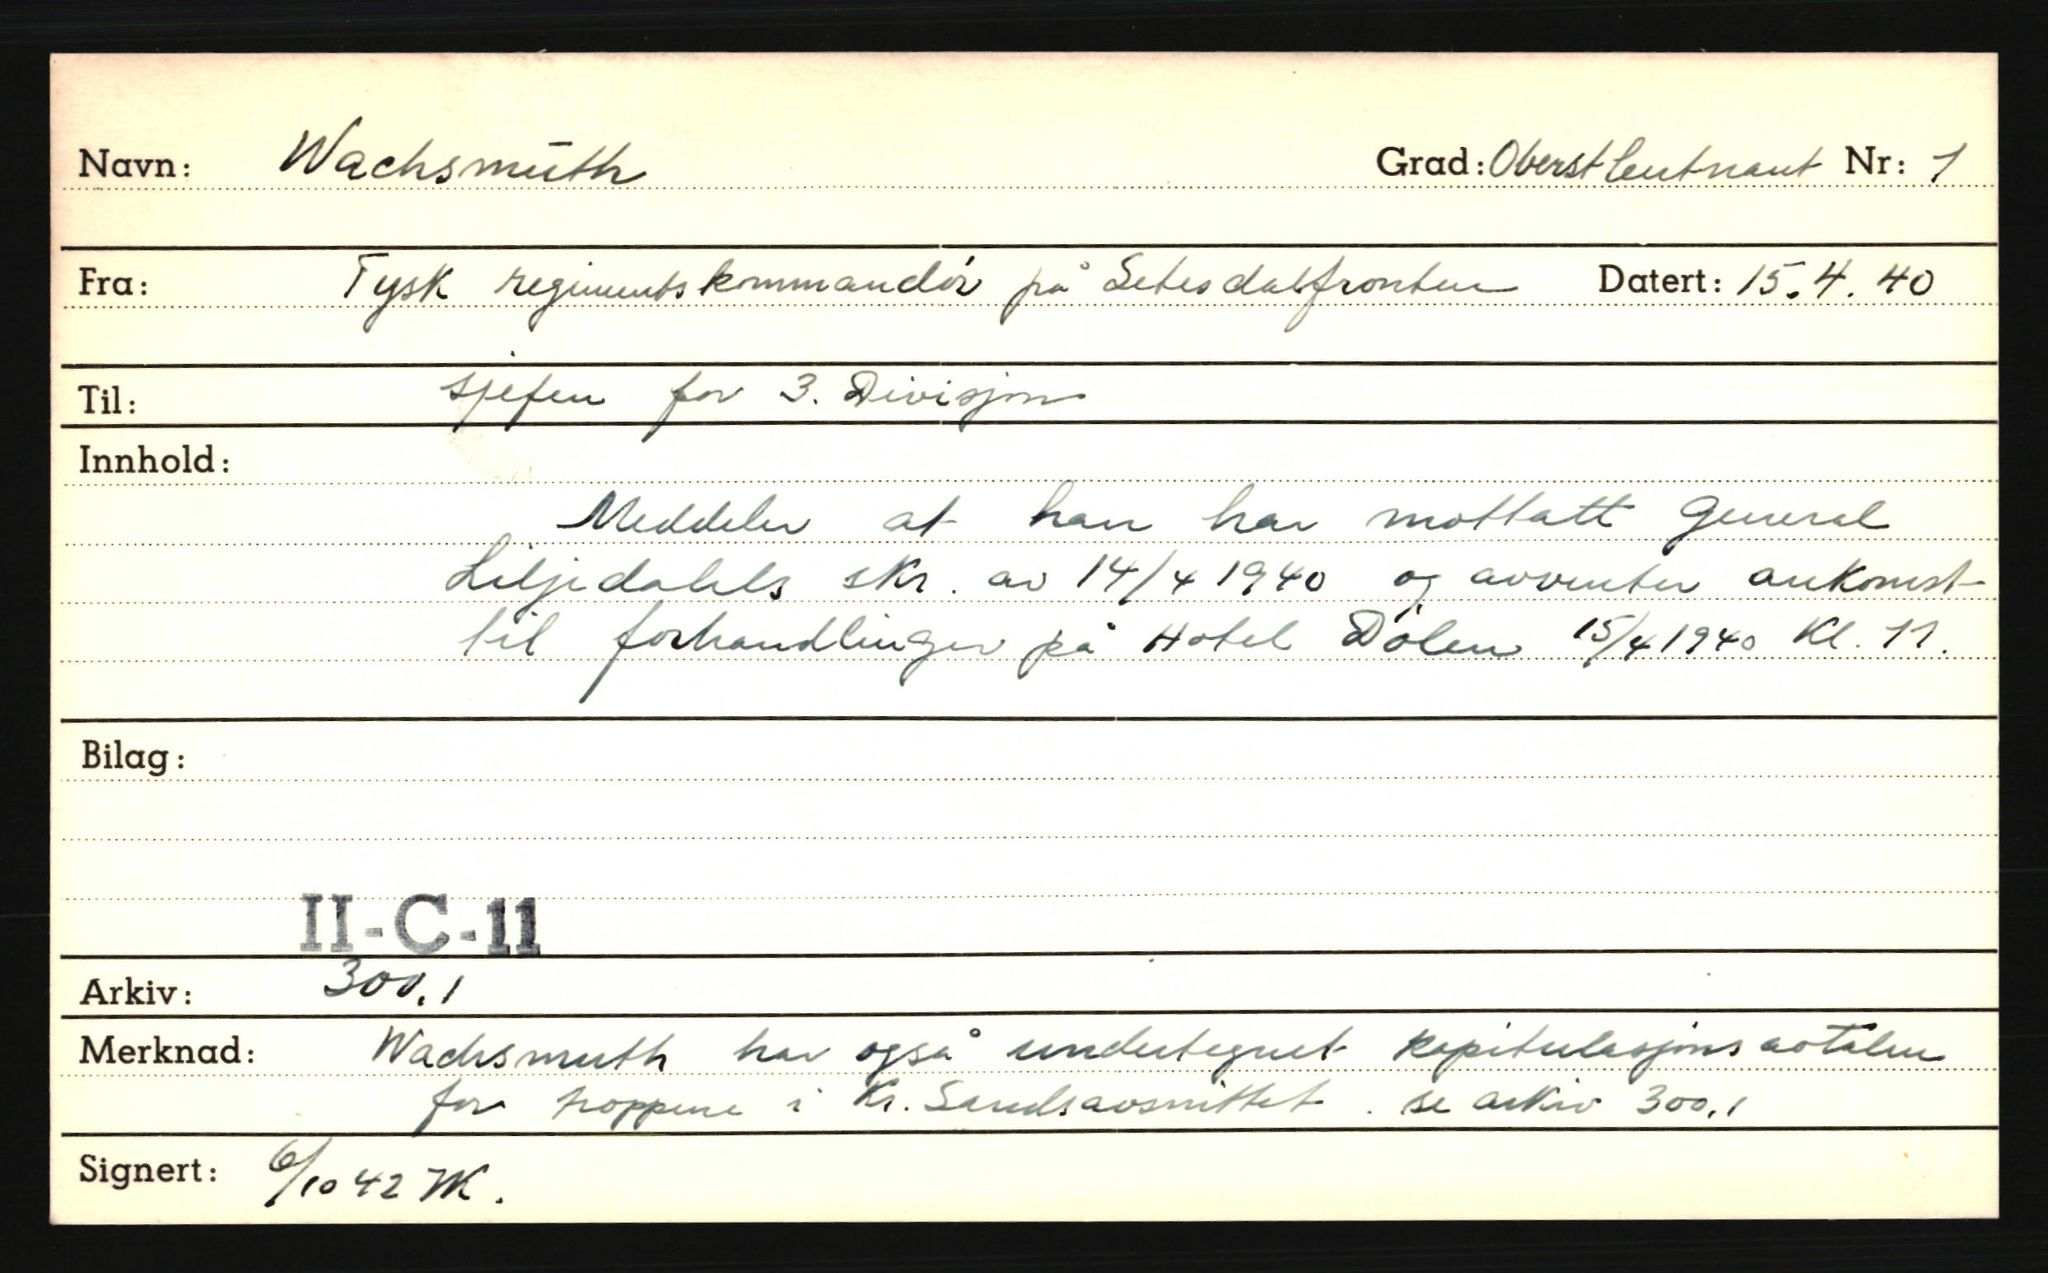 Navn: Wachsmuth Grad: Oberstleutnant Nr: 1
Fra: Tysk regimentskommandör på Setesdalsfronten Datert: 15.4.40
Til: sjefen for 3. Divisjon
Innhold:
Meddeler at han har mottatt General
Liljedahls skr. av 14/4 1940 og avventer ankomst
til forhandlinger på Hotel Dölen 15/4 1940 Kl. 11.
Bilag:
II-C-11
Arkiv: 300.1
Merknad: Wachsmuth har også undertegnet kapitulasjonsavtalen
for troppene i Kr. Sandsavsnittet. se arkiv 300.1
Signert: 6/10 42 JK.